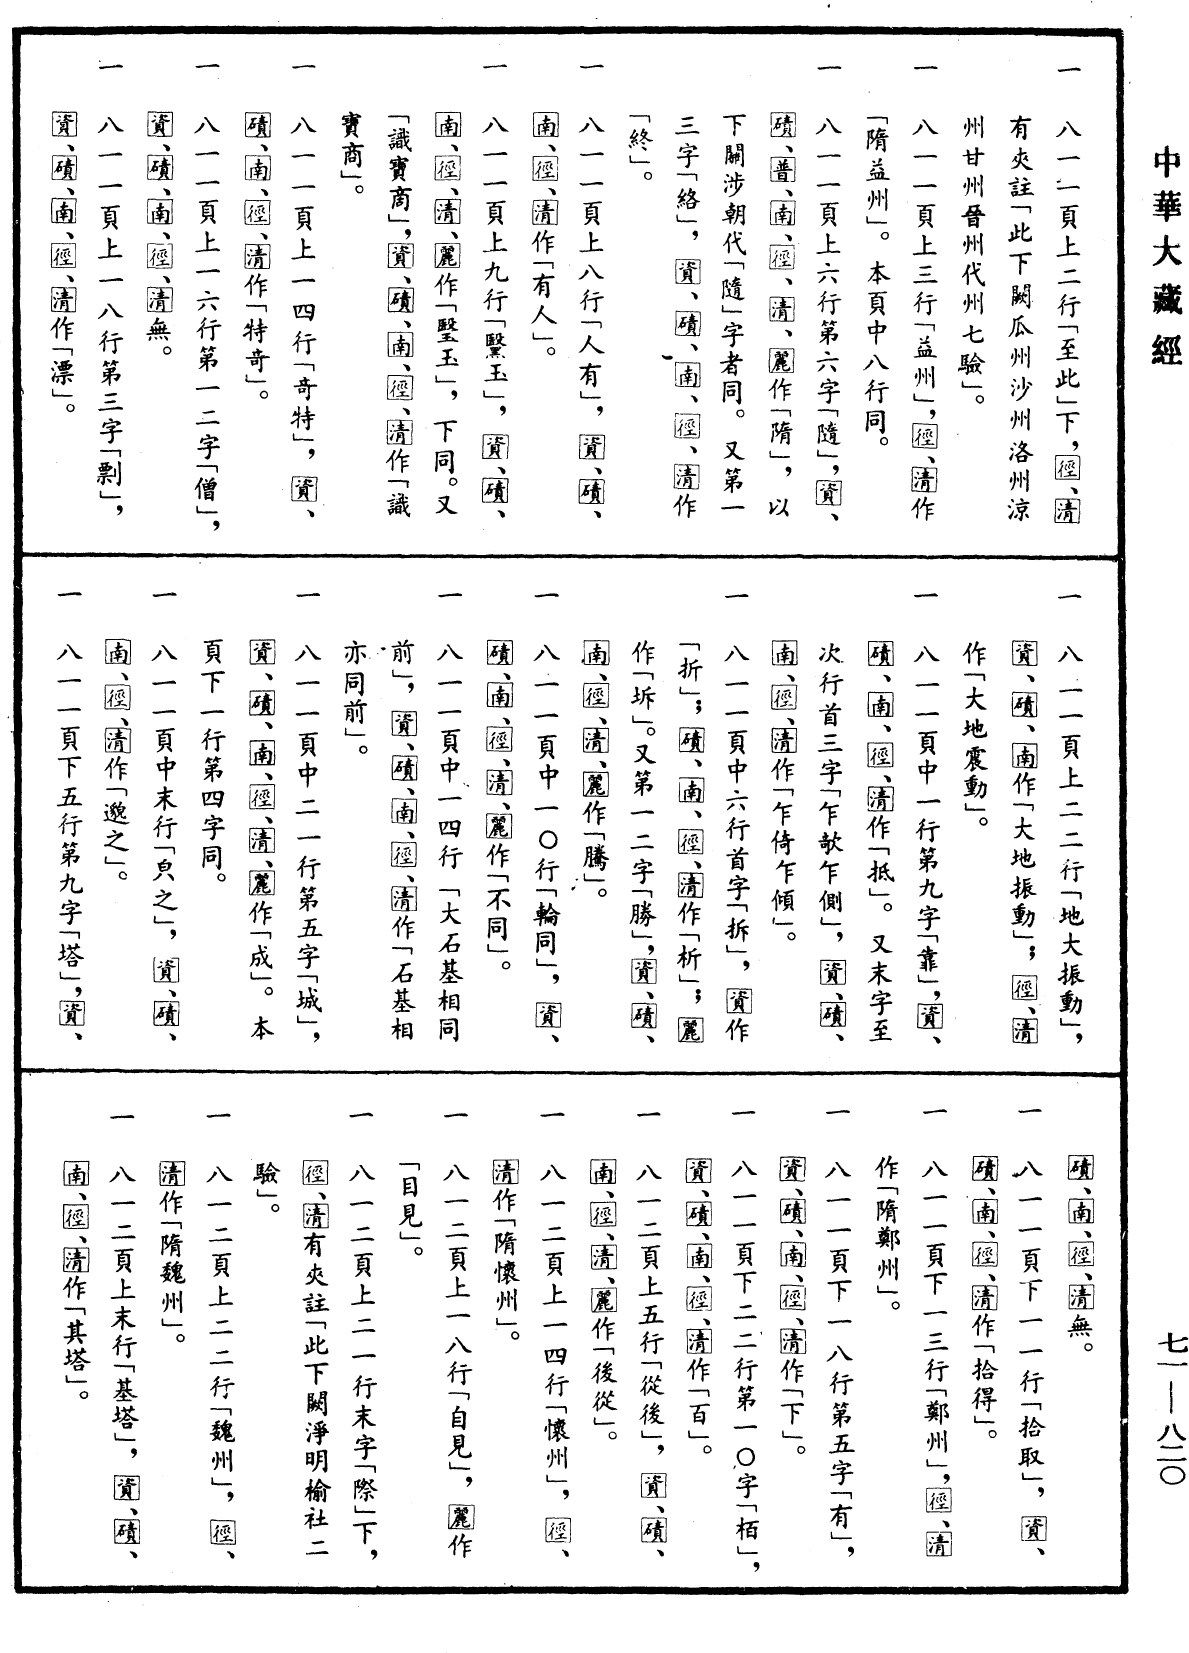 中華大藏經
一 八一一頁上二行「至此」下，徑、清
有夾註「此下闕瓜州沙州洛州涼
州甘州晉州代州七驗」。
一 八一一頁上三行「益州」，徑、清作
「隋益州」。本頁中八行同。
一 八一一頁上六行第六字「隨」，資、
磧、普、南、徑、清、麗作「隋」，以
下關涉朝代「隨」字者同。又第一
三字「絡」，資、磧、南、徑、清作
「終」。
一 八一一頁上八行「人有」，資、磧、
南、徑、清作「有人」。
一 八一一頁上九行「黳玉」，資、磧、
南、徑、清、麗作「瑿玉」，下同。又
「識寶商」，資、磧、南、徑、清作「識
寶商」。
一 八一一頁上一四行「奇特」，資、
磧、南、徑、清作「特奇」。
一 八一一頁上一六行第一二字「僧」，
資、磧、南、徑、清無。
一 八一一頁上一八行第三字「剽」，
資、磧、南、徑、清作「漂」。
一 八一一頁上二二行「地大振動」，
資、磧、南作「大地振動」；徑、清
作「大地震動」。
一 八一一頁中一行第九字「靠」，資、
磧、南、徑、清作「抵」。又末字至
次行首三字「乍欹乍側」，資、磧、
南、徑、清作「乍倚乍傾」。
一 八一一頁中六行首字「拆」，資作
「折」；磧、南、徑、清作「析」；麗
作「坼」。又第一二字「勝」，資、磧、
南、徑、清、麗作「騰」。
一 八一一頁中一〇行「輪同」，資、
磧、南、徑、清、麗作「不同」。
一 八一一頁中一四行「大石基相同
前」，資、磧、南、徑、清作「石基相
亦同前」。
一 八一一頁中二一行第五字「城」，
資、磧、南、徑、清、麗作「成」。本
頁下一行第四字同。
一 八一一頁中末行「㒵之」，資、磧、
南、徑、清作「邈之」。
一 八一一頁下五行第九字「塔」，資、
磧、南、徑、清無。
一 八一一頁下一一行「拾取」，資、
磧、南、徑、清作「拾得」。
一 八一一頁下一三行「鄭州」，徑、清
作「隋鄭州」。
一 八一一頁下一八行第五字「有」，
資、磧、南、徑、清作「下」。
一 八一一頁下二二行第一〇字「栢」，
資、磧、南、徑、清作「百」。
一 八一二頁上五行「從後」，資、磧、
南、徑、清、麗作「後從」。
一 八一二頁上一四行「懷州」，徑、
清作「隋懷州」。
一 八一二頁上一八行「自見」，麗作
「目見」。
一 八一二頁上二一行末字「際」下，
徑、清有夾註「此下闕淨明榆社二
驗」。
一 八一二頁上二二行「魏州」，徑、
清作「隋魏州」。
一 八一二頁上末行「基塔」，資、磧、
南、徑、清作「其塔」。
七一—八二〇